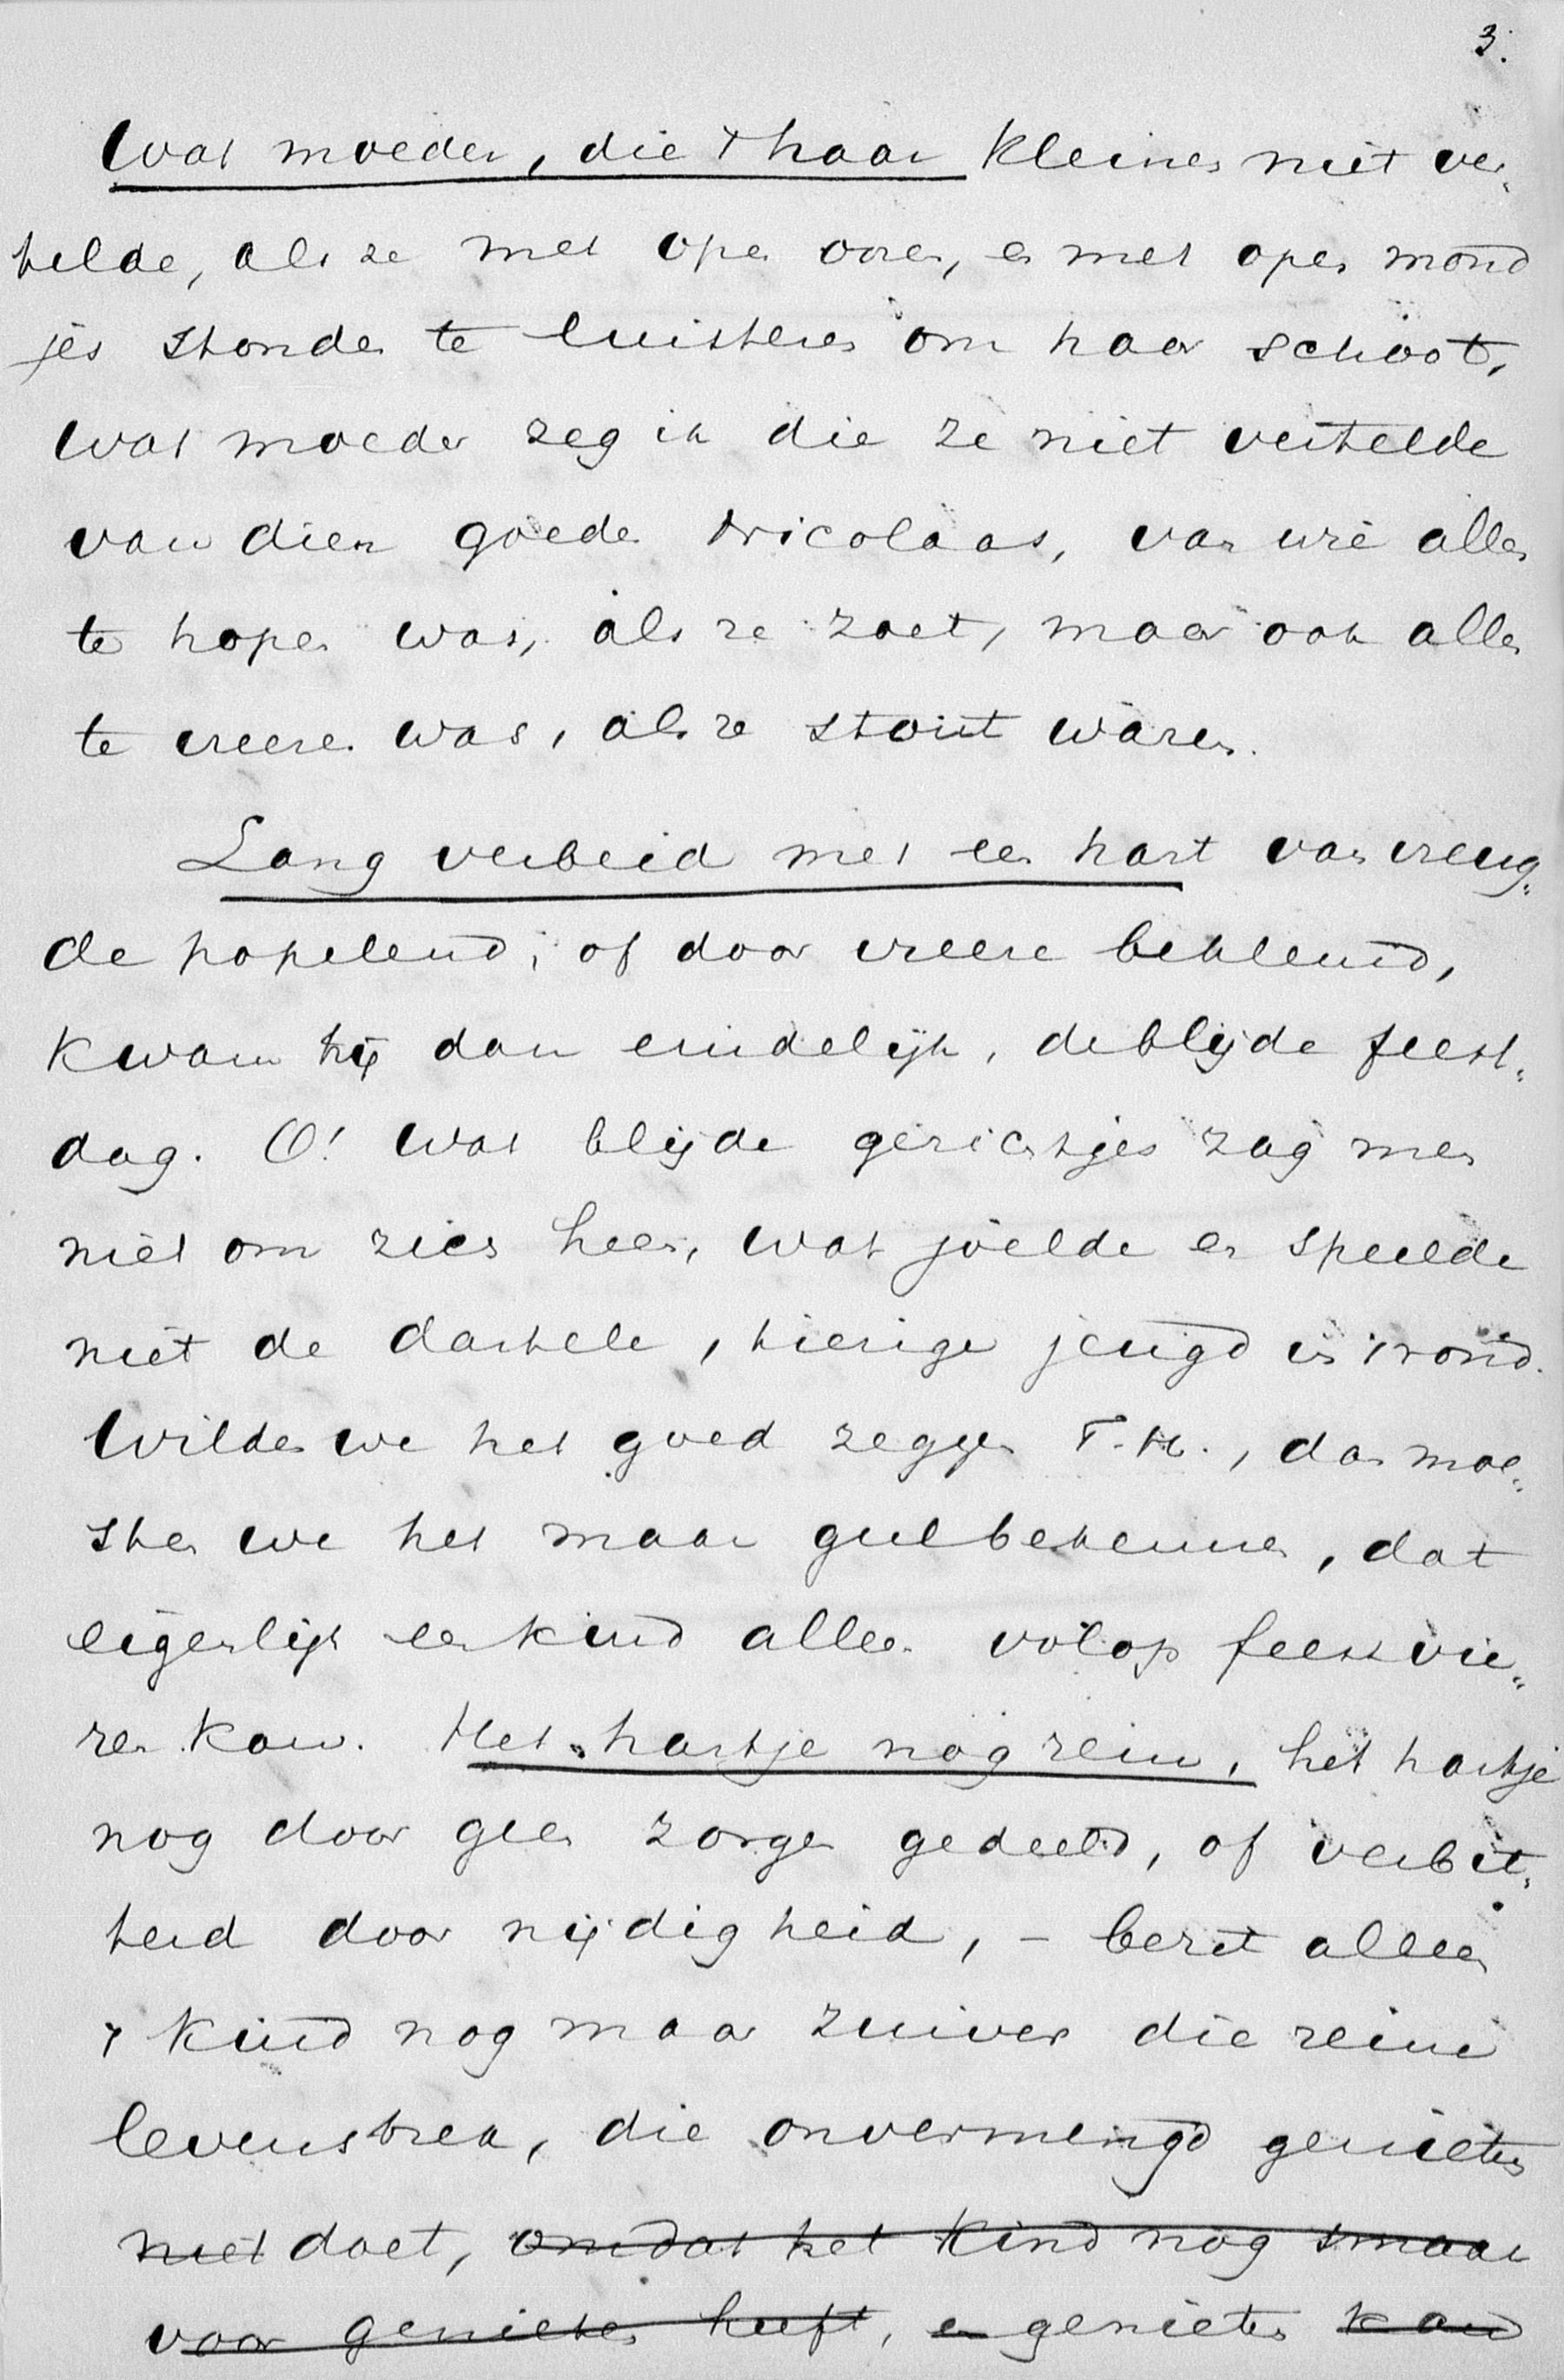 3.
Wat moeder, die 't haar kleinen niet ver-
telde, als ze met open ooren, en met open mond
jes stonden te luisteren om haar schoot,
wat moeder zeg ik die ze niet vertelde
van dien goeden Nicolaas, van wie alles
te hopen was, als ze zoet, maar ook alles
te vreezen was, als ze stout waren.
Lang verbeid met een hart van vreug-
de popelend, of door vreeze beklemd,
kwam hij dan eindelijk, de blijde feest-
dag. O! wat blijde gezichtjes zag men
niet om zich heen, wat joelde en speelde
niet de dartele, tierige jeugd in 't rond.
Wilden we het goed zeggen T.H., dan moe-
sten we het maar gul bekennen, dat
eigenlijk een kind alleen volop feestvie-
ren kan. Het hartje nog rein, het hartje
nog door geen zorgen gedeeld, of verbit-
terd door nijdigheid, - bezit alleen
't kind nog maar zuiver die reine
levenstrek, die onvermengd genieten
niet doet, omdat het kind nog smaak
voor genieten heeft, en genieten kan